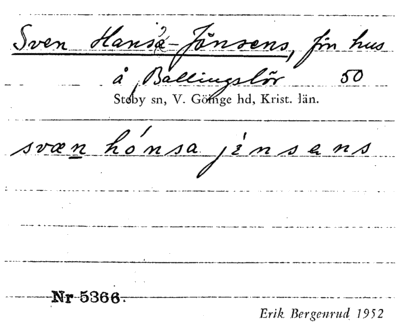 Sven Hans?-Jönsens, fm hus
å Ballingslöv 50
Stoby sn, V. Göinge hd, Krist. län.
svæn hónsa jènsens
Nr 5366.
Erik Bergenrud 1952